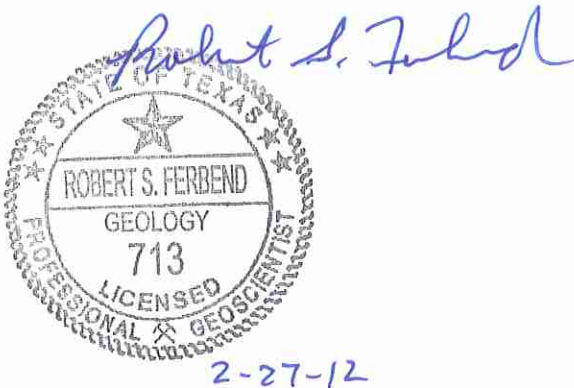 Robert S. Ferbend
STATE OF TEXAS
ROBERT S. FERBEND
GEOLOGY
713
LICENSED
PROFESSIONAL GEOSCIENTIST
2-27-12